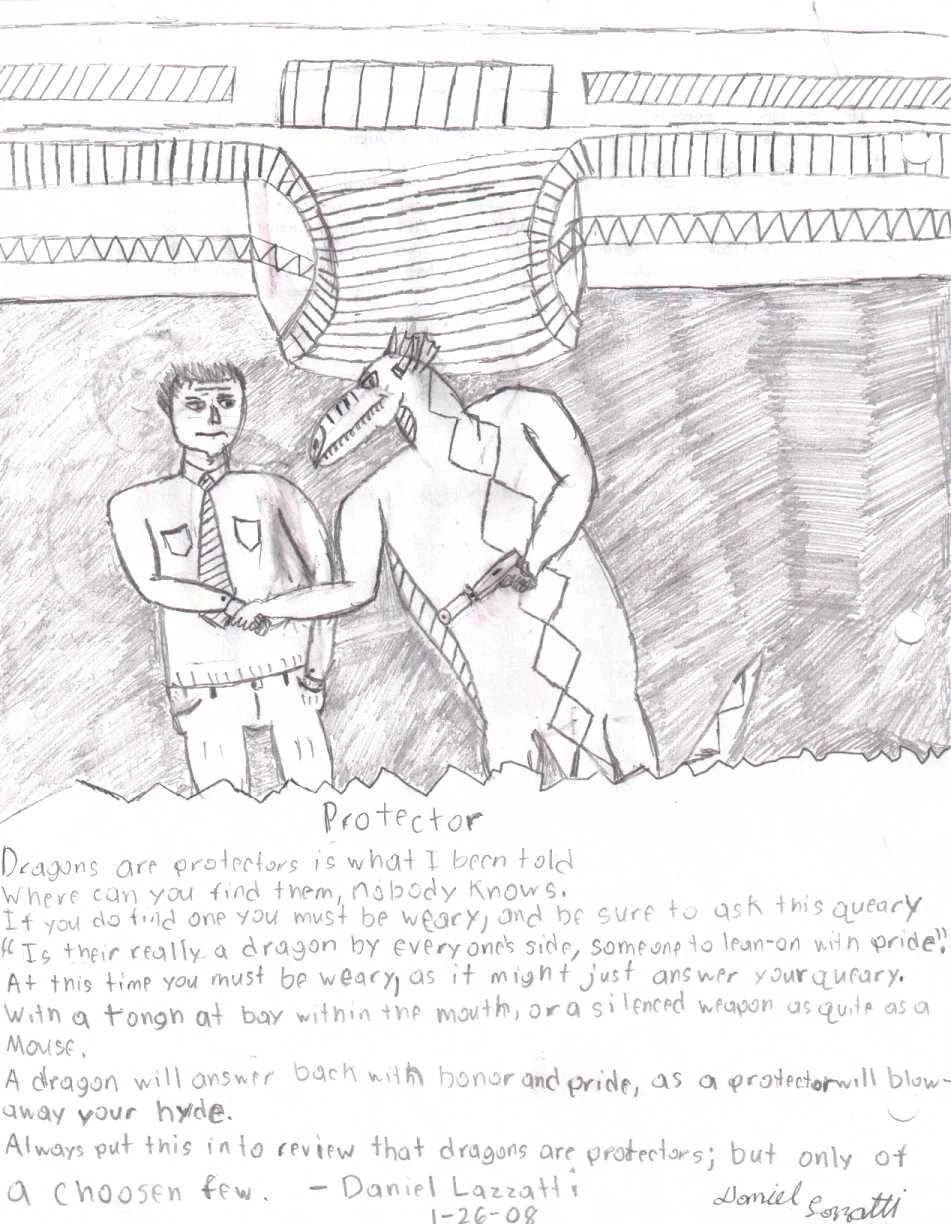 Protector
Dragons are protectors is what I been told
Where can you find them, nobody knows.
If you do find one you must be weary, and be sure to ask this queary
“Is their really a dragon by everyone's side, someone to lean-on with pride”.
At this time you must be weary, as it might just answer your queary.
With a tongh at bay within the mouth, or a silenced weapon as quite as a
Mouse.
A dragon will answer back with honor and pride, as a protector will blow-
away your hyde.
Always put this into review that dragons are protectors; but only of
a choosen few. - Daniel Lazzatti
Daniel Lazzatti
1-26-08